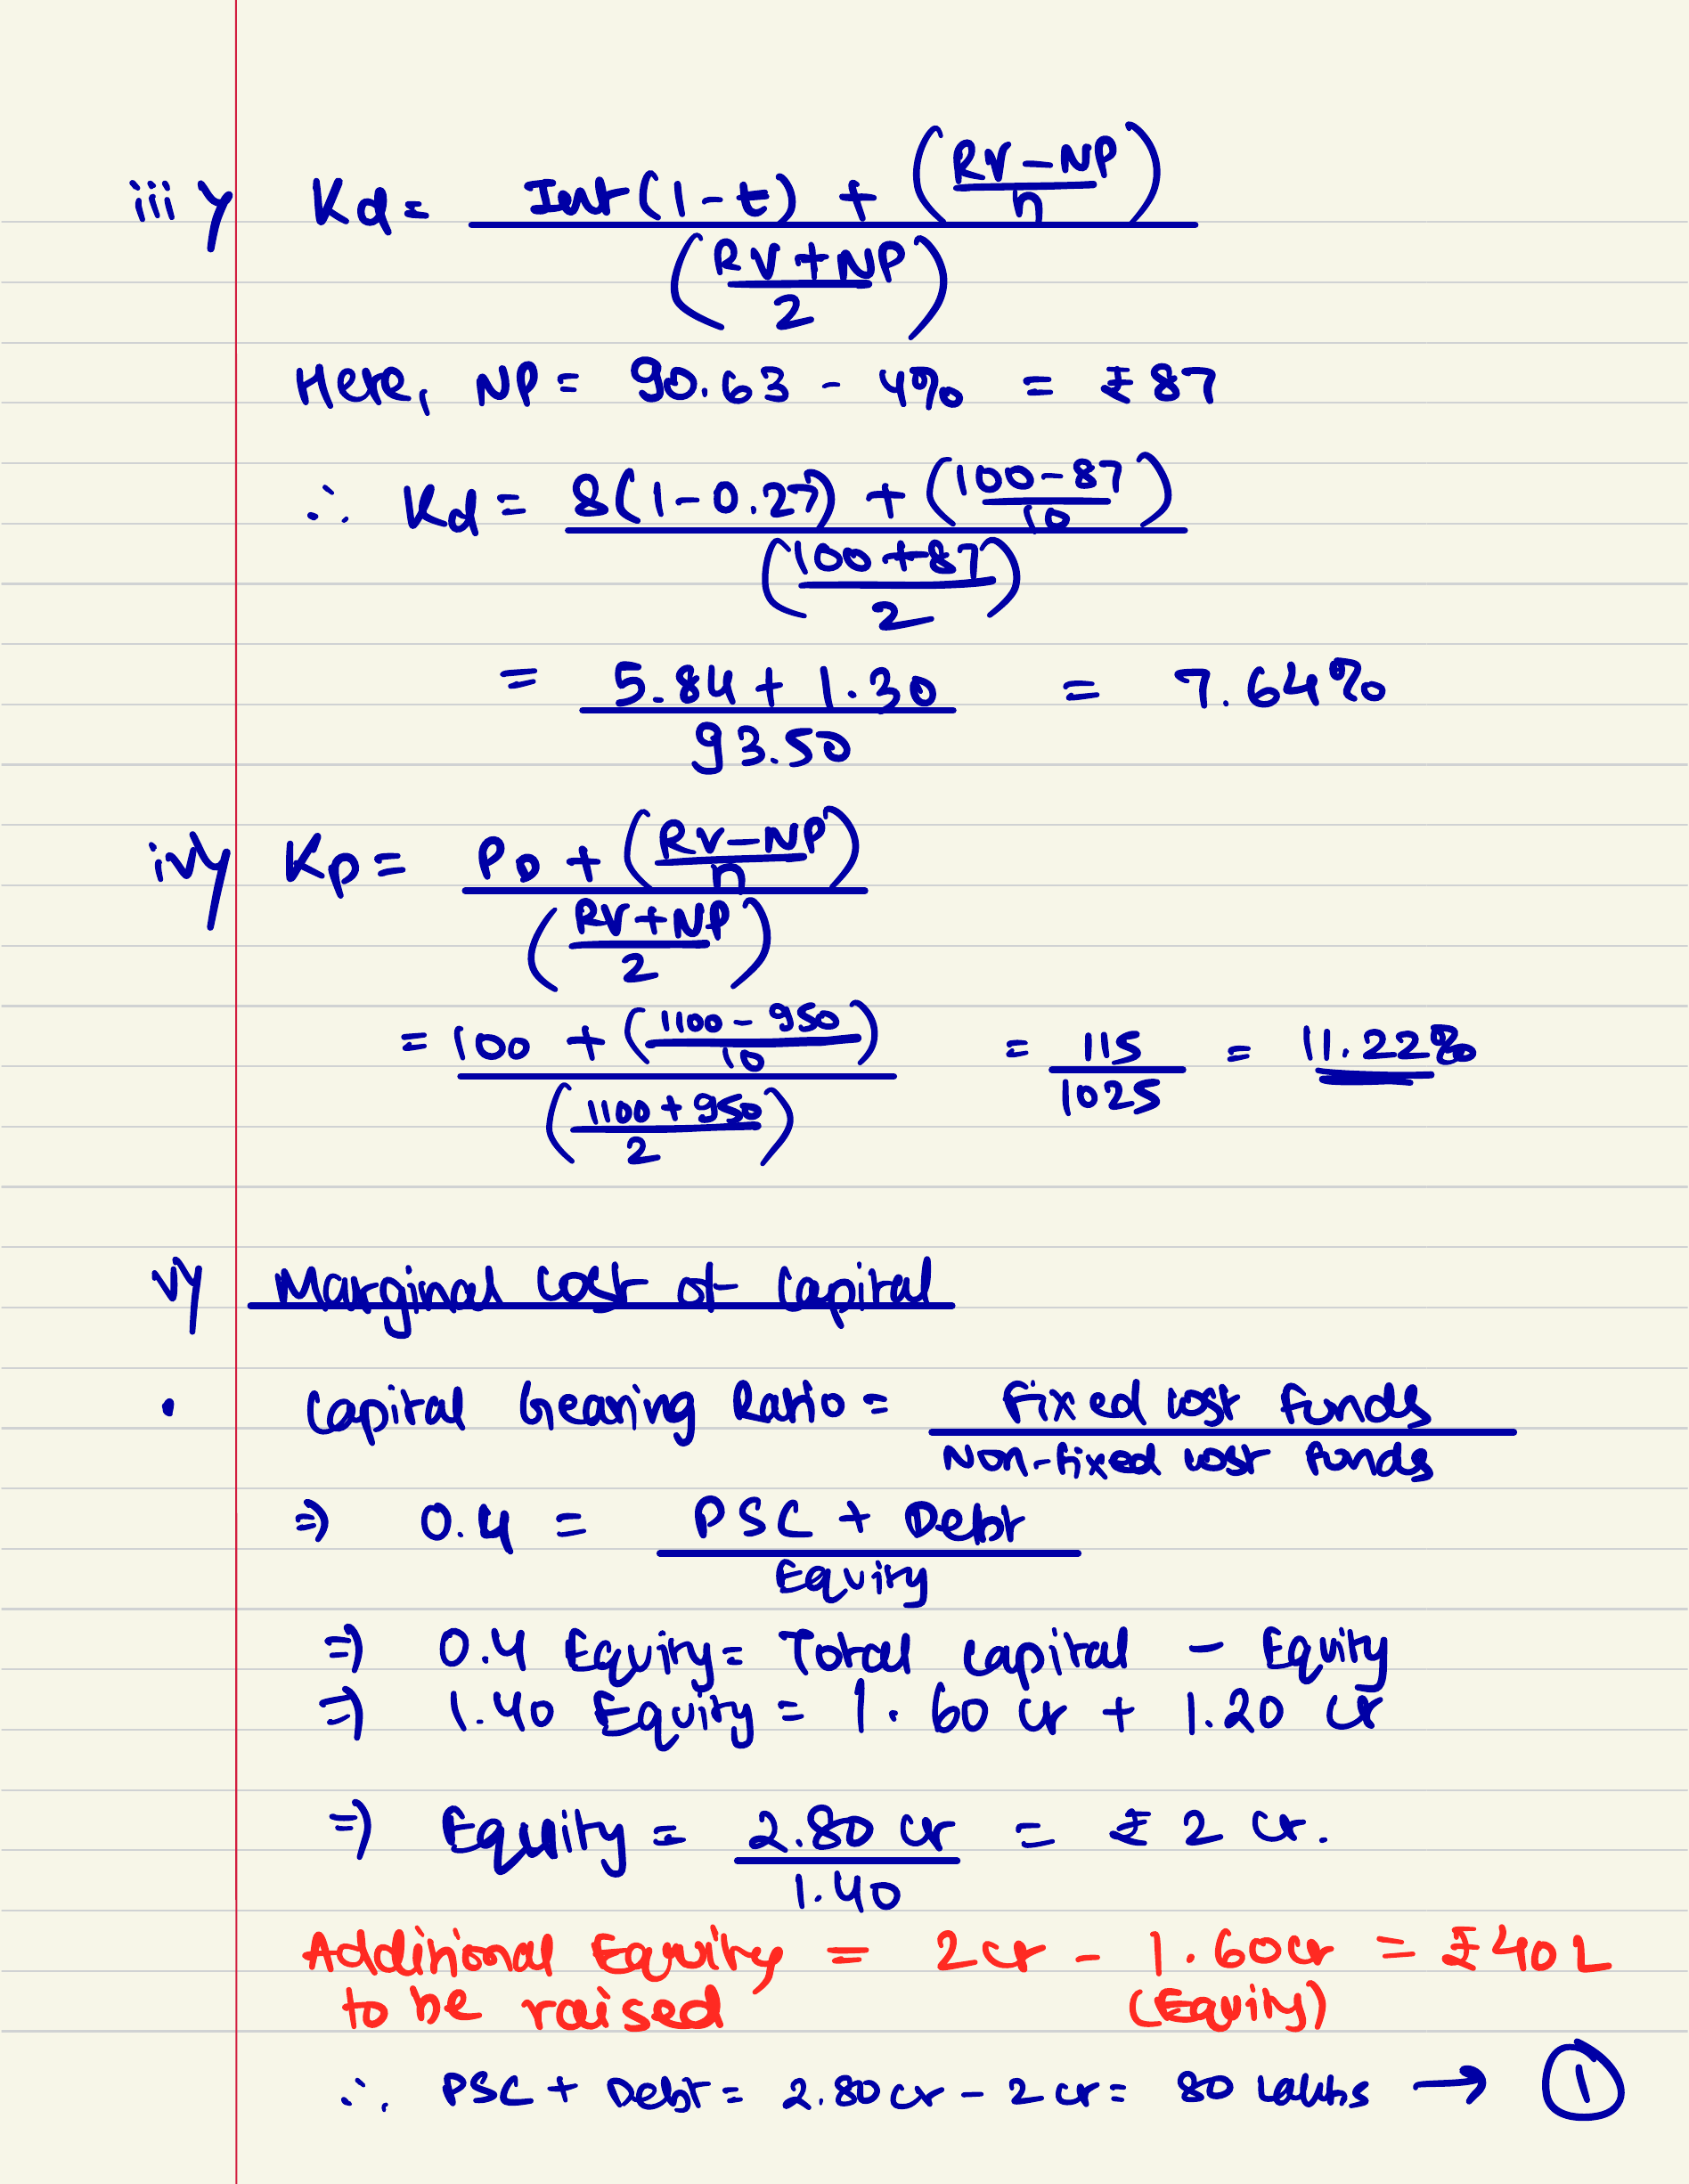 iii) Kd = Int(1-t) + (RV-NP/n)
(RV+NP/2)
Here, NP = 90.63 - 4% = ₹87
∴ Kd = 8(1-0.27) + (100-87/10)
(100+87/2)
= 5.84 + 1.30 = 7.64%
93.50
iv) Kp = PD + (RV-NP/n)
(RV+NP/2)
= 100 + (1100-950/10) = 115 = 11.22%
(1100+950/2) 1025
v) Marginal cost of capital
• Capital Gearing Ratio = Fixed cost funds
Non-fixed cost funds
⇒ 0.4 = PSC + Debt
Equity
⇒ 0.4 Equity = Total capital - Equity
⇒ 1.40 Equity = 1.60 cr + 1.20 cr
⇒ Equity = 2.80 cr = ₹ 2 cr.
1.40
Additional Equity = 2cr - 1.60cr = ₹40L
to be raised (Equity)
∴ PSC + Debt = 2.80cr - 2cr = 80 lakhs → ①